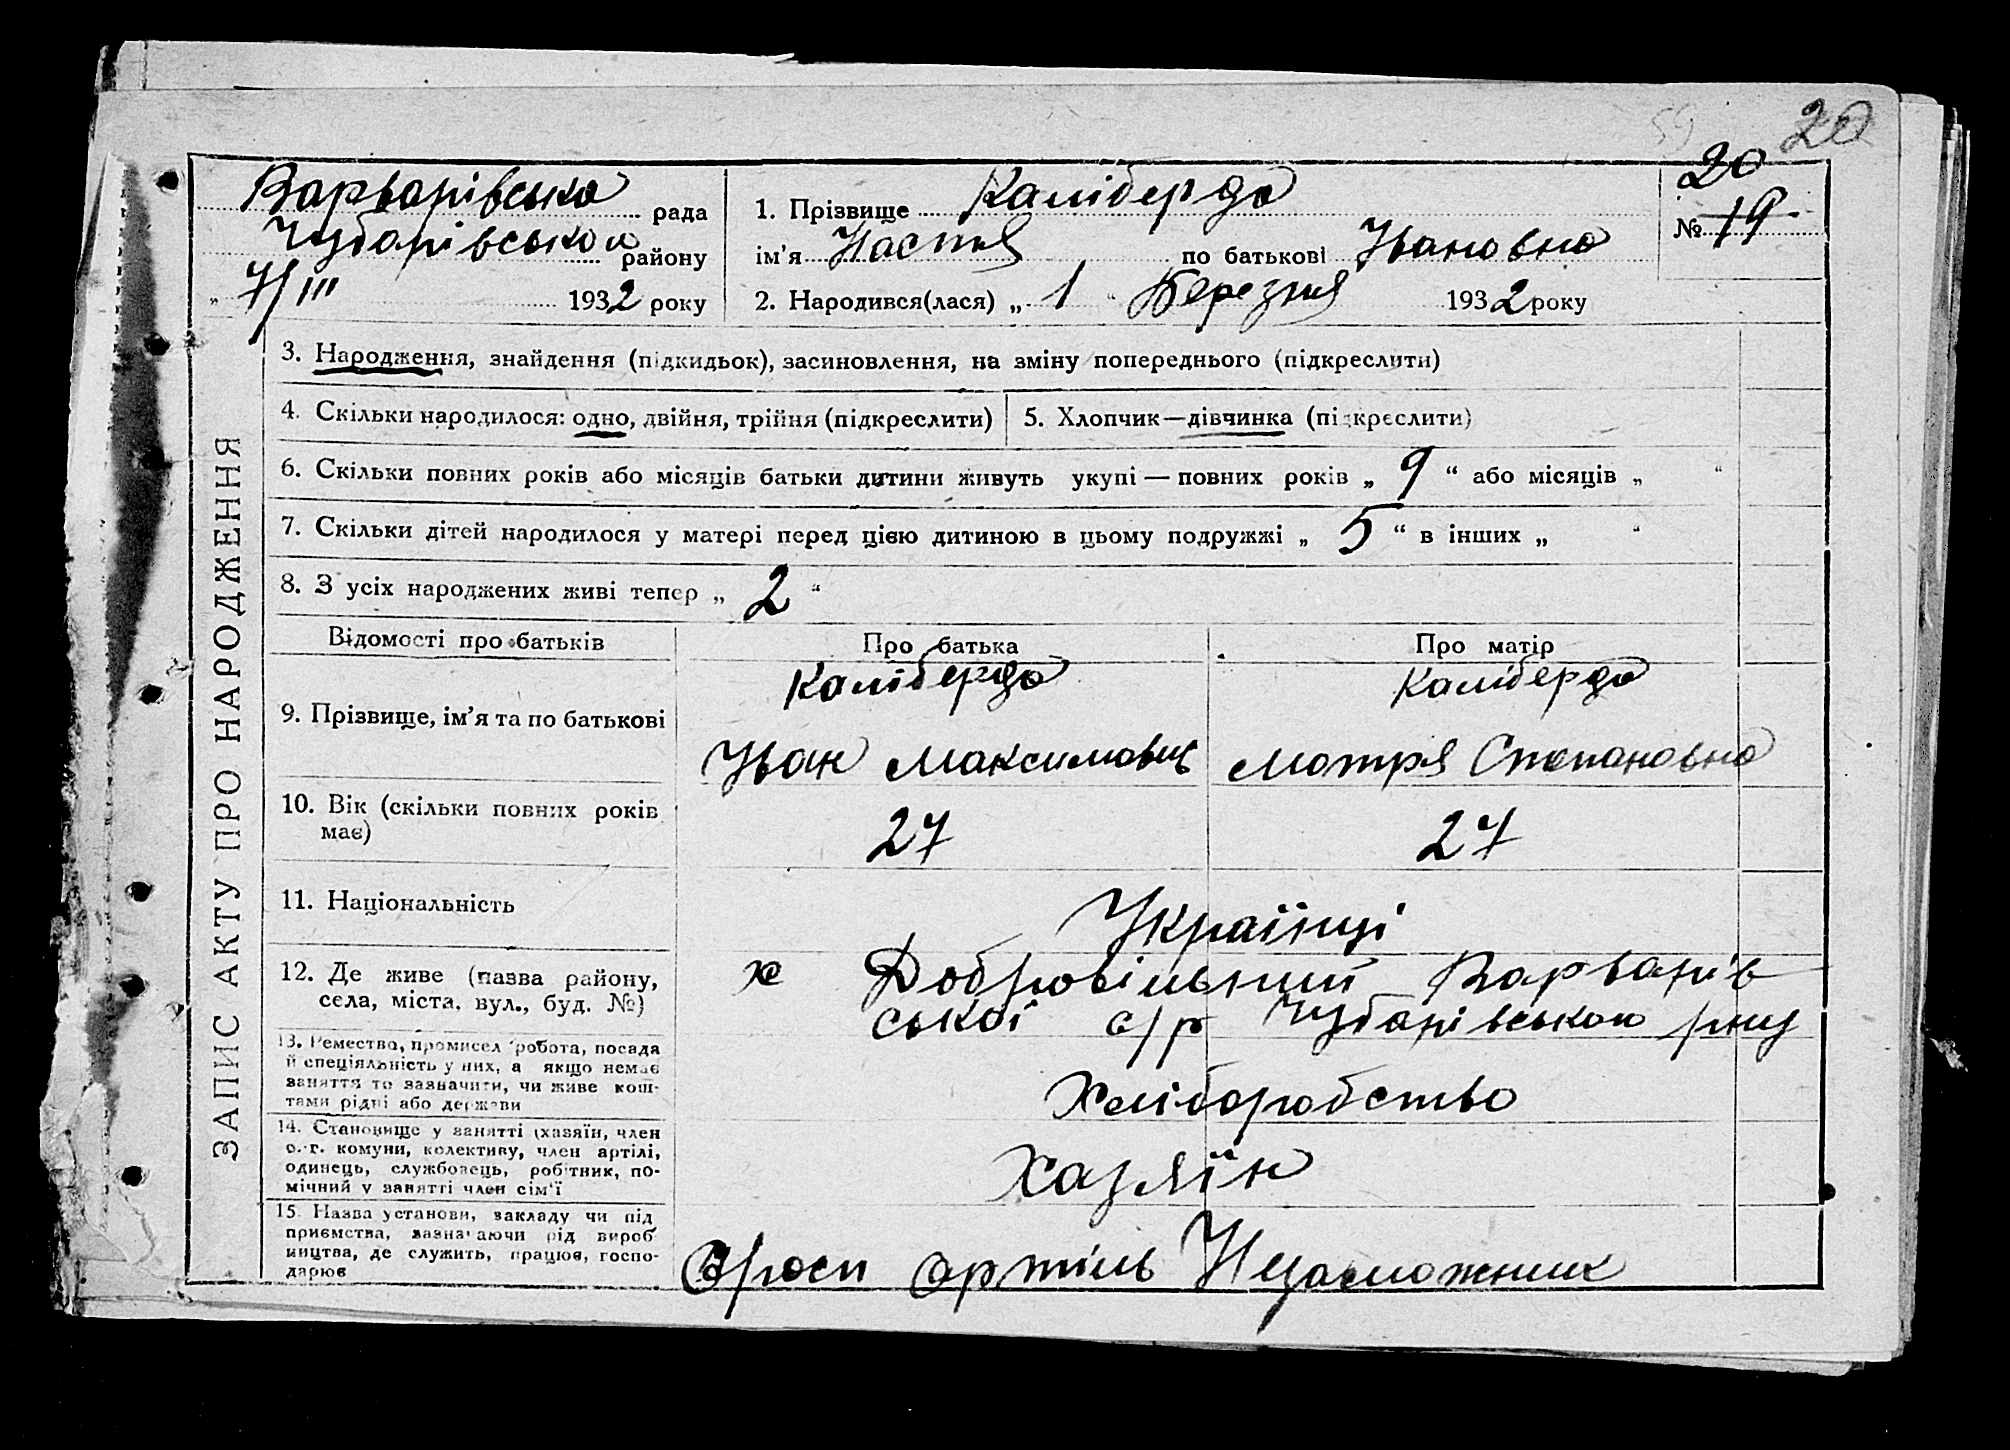 20
20
Варварівська рада
Чубарівського району
7/III 1932 року
1. Прізвище Каліберда
№ 19
ім’я Настя по батькові Івановна
2. Народився(лася) „ 1 “ Березня 1932 року
ЗАПИС АКТУ ПРО НАРОДЖЕННЯ
3. Народження, знайдення (підкидьок), засиновлення, на зміну попереднього (підкреслити)
4. Скільки народилося: одно, двійня, трійня (підкреслити)
5. Хлопчик—дівчинка (підкреслити)
6. Скільки повних років або місяців батьки дитини живуть укупі — повних років „ 9 “ або місяців „ “
7. Скільки дітей народилося у матері перед цією дитиною в цьому подружжі „ 5 “ в інших „ “
8. З усіх народжених живі тепер „ 2 “
Відомості про батьків
Про батька
Про матір
9. Прізвище, ім’я та по батькові
Каліберда
Іван Максимович
Каліберда
Мотря Степановна
10. Вік (скільки повних років
має)
27
27
11. Національність
Українці
12. Де живе (назва району,
села, міста, вул., буд. №)
х Добровільний Варварів
ської с/р Чубарівського р-ну
13. Ремество, промисел робота, посада
й спеціяльність у них, а якщо немає
заняття то зазначити, чи живе кош-
тами рідні або держави
Хліборобство
14. Становище у занятті (хазяїн, член
с.-г. комуни, колективу, член артілі,
одинець, службовець, робітник, по-
мічний у занятті член сім’ї
Хазяїн
15. Назва установи, закладу чи під
приємства, зазначаючи рід вироб
ництва, де служить, працює, госпо-
дарює
артіль Незаможник